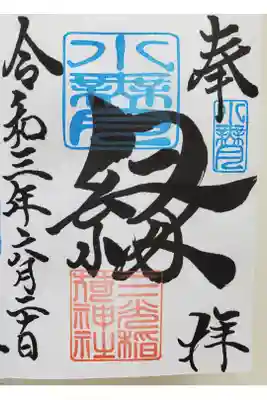 奉拝
水無月
縁
水無月
三光稲
荷神社
令和三年六月二十日